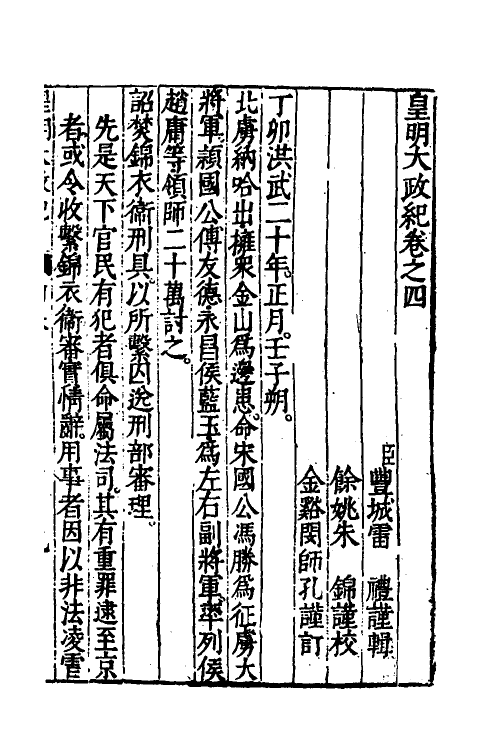 皇明大政紀卷之四
臣豐城雷　禮謹輯
餘姚朱　錦謹校
金谿閔師孔謹訂
丁卯洪武二十年。正月。壬子朔。
北虜納哈出擁衆金山爲邊患。命宋國公馮勝爲征虜大
將軍。潁國公傅友德永昌侯藍玉爲左右副將軍。率列侯
趙庸等領師二十萬討之。
詔焚錦衣衛刑具。以所繫囚送刑部審理。
先是天下官民有犯者俱命屬法司。其有重罪逮至京
者或令收繫錦衣衛審實情辭。用事者因以非法凌虐